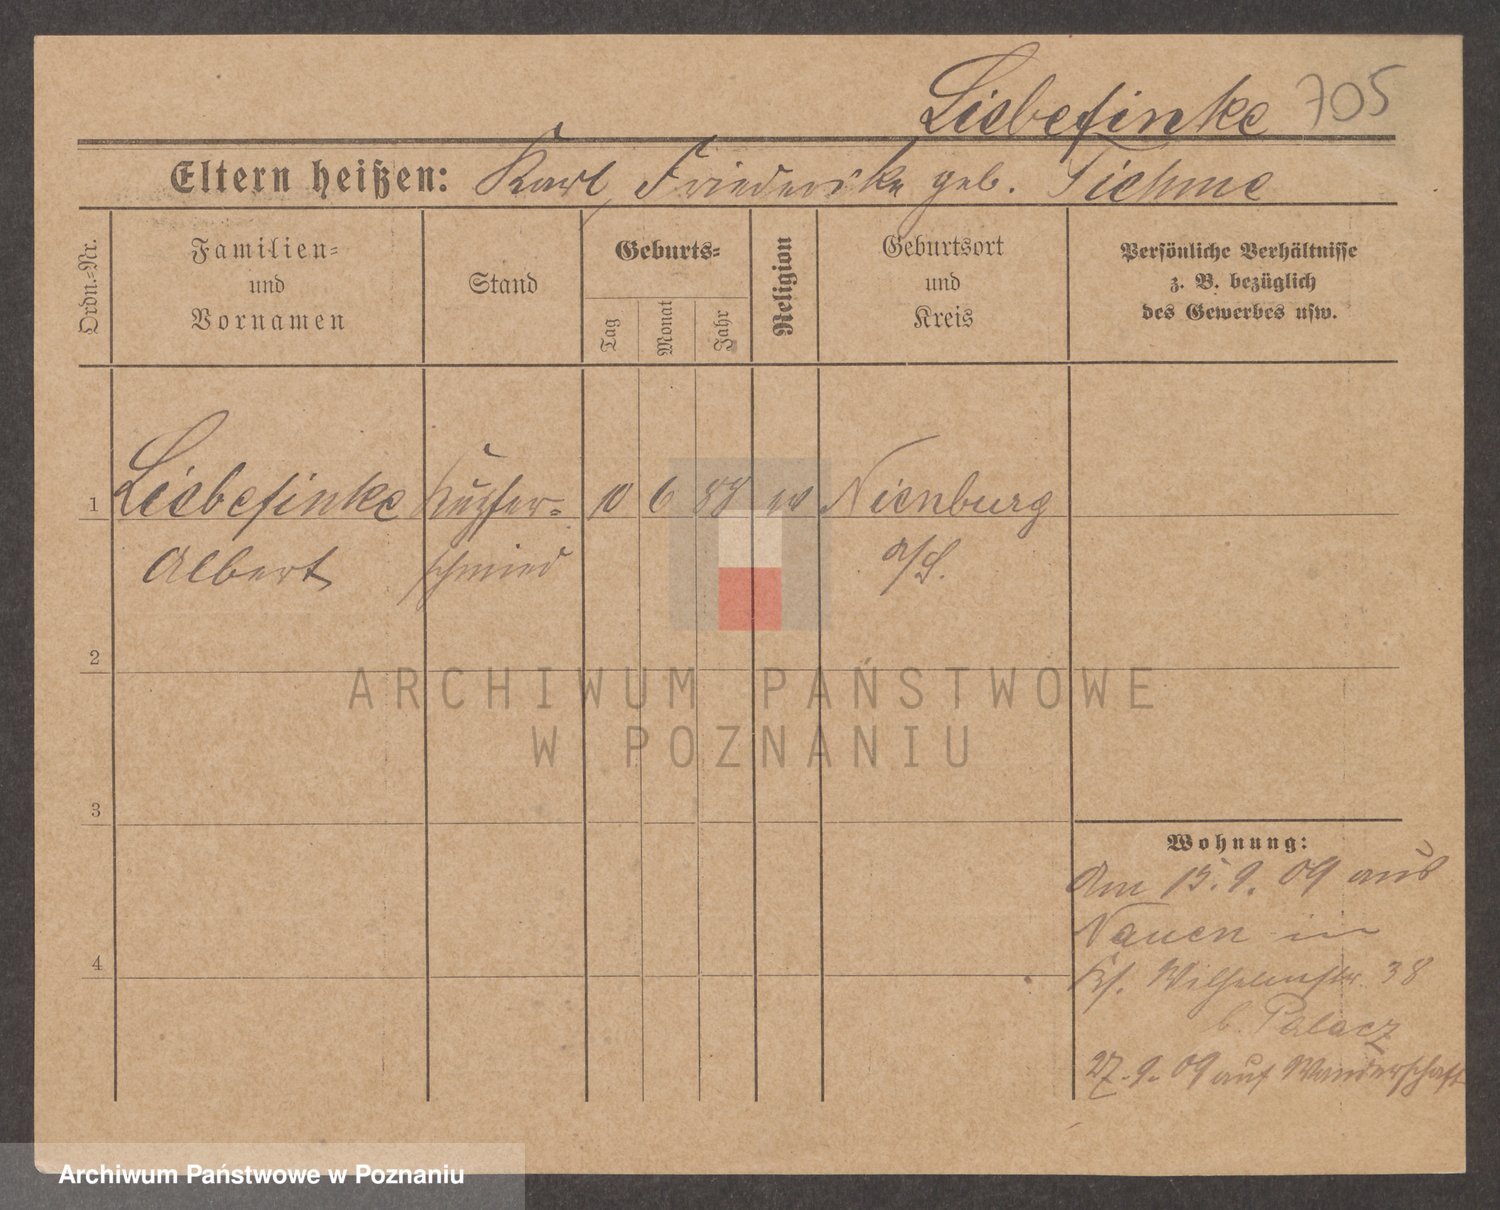 Liebefinke 705
Eltern heißen: Karl, Friederike geb. Tiehme
Ordn.=Nr.
Familien=
und
Vornamen
Stand
Geburts=
Tag
Monat
Jahr
Religion
Geburtsort
und
Kreis
Persönliche Verhältnisse
z. B. bezüglich
des Gewerbes usw.
1 Liebefinke Kupfer= 10 6 88 Nienburg
Albert schmied a/S.
2
ARCHIWUM PAŃSTWOWE
W POZNANIU
3
Wohnung:
Am 15.9.09 aus
Nauen in
4
Wilhelmstr. 38
b. Palacz
27.9.09 auf Wanderschaft
Archiwum Państwowe w Poznaniu